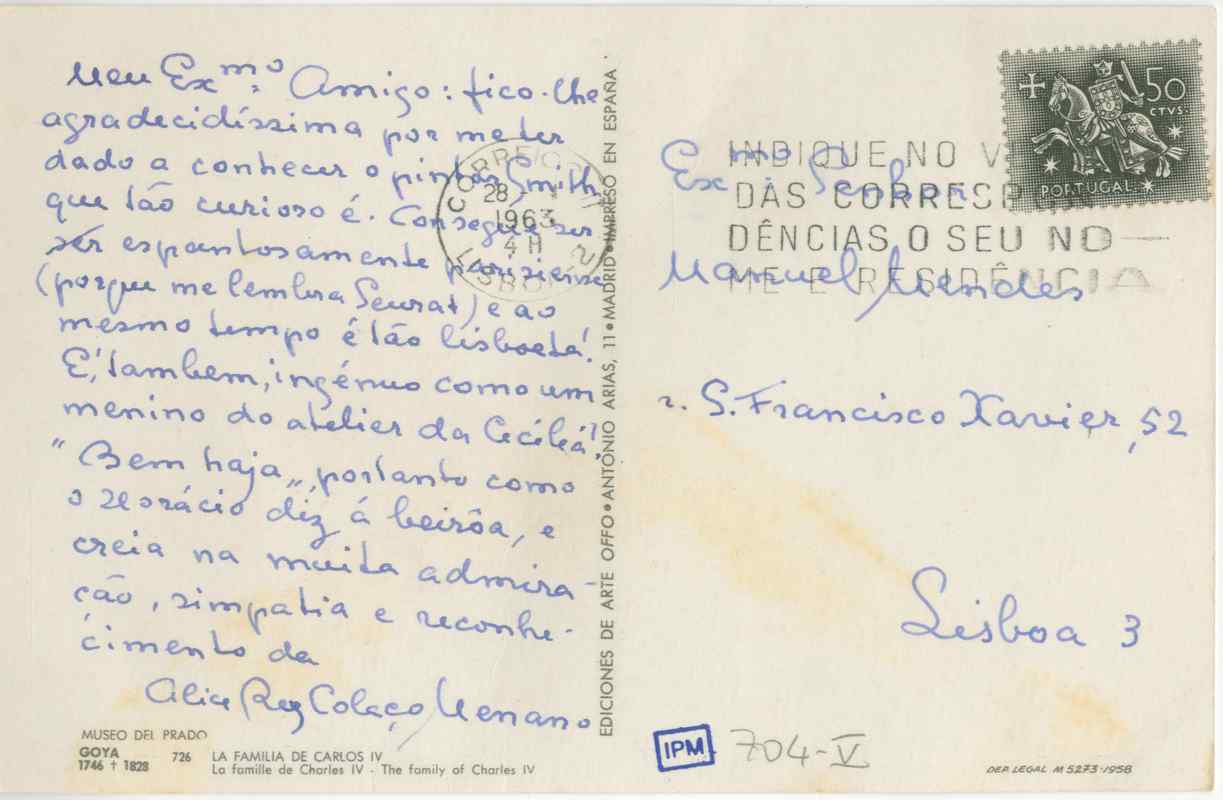 Meu Ex.mo Amigo: fico-lhe
agradecidíssima por me ter
dado a conhecer o pintor Smith,
que tão curioso é. Consegue ser
ser espantosamente parisiense
(porque me lembra Seurat) e ao
mesmo tempo é tão lisboeta!
É, tambem, ingénuo como um
menino do atelier da Cecília!
"Bem haja", portanto como
o Horácio diz á beirôa, e
creia na muita admira-
ção, simpatia e reconhe-
cimento da
Alice Rey Colaço Menano
MUSEO DEL PRADO
GOYA 726 LA FAMILIA DE CARLOS IV
1746 † 1828 La famille de Charles IV - The family of Charles IV
EDICIONES DE ARTE OFFO • ANTONIO ARIAS, 11 • MADRID • IMPRESO EN ESPAÑA
CORREIO
28
1963
4 H
LISBOA 2
INDIQUE NO V
DAS CORRESPON
DÊNCIAS O SEU NO
ME E RESIDÊNCIA
50
CTVS.
PORTUGAL
Ex.mo Senhor
Manuel Mendes
r. S. Francisco Xavier, 52
Lisboa 3
IPM 704-V
DEP. LEGAL M 5273-1958